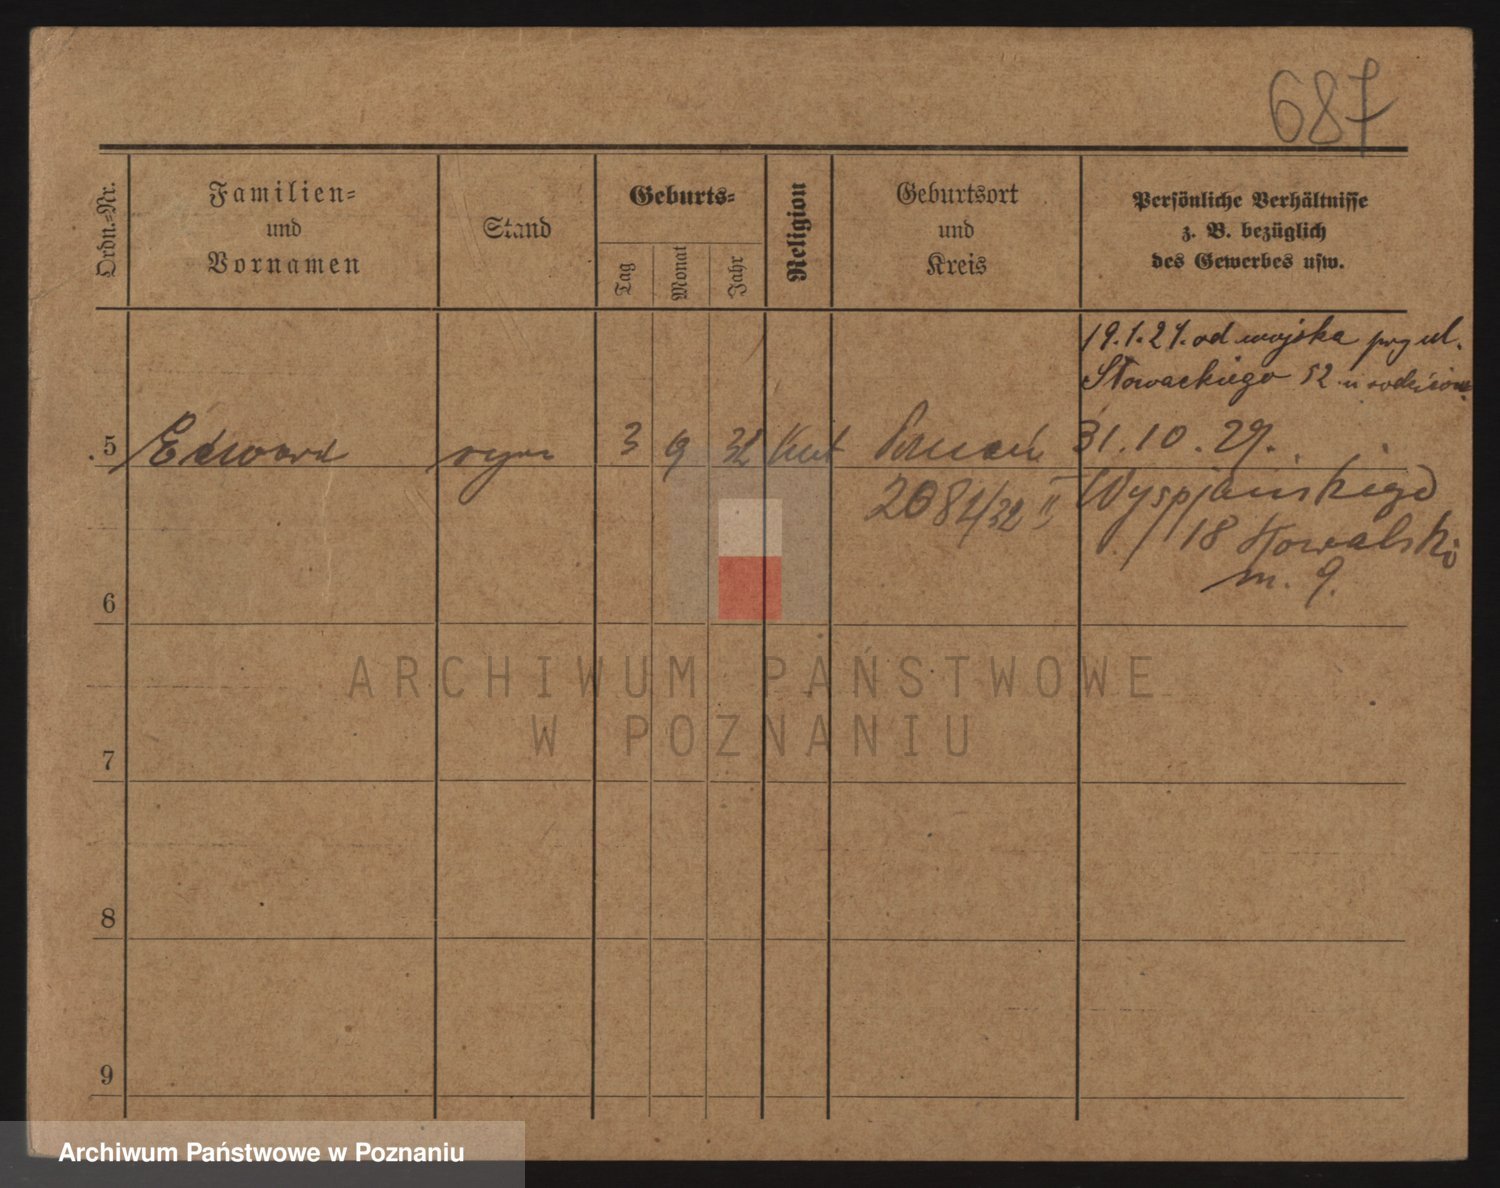 687
Ordn.-Nr.
Familien-
und
Vornamen
Stand
Geburts-
Tag
Monat
Jahr
Religion
Geburtsort
und
Kreis
Persönliche Verhältnisse
z. B. bezüglich
des Gewerbes usw.
19.1.21. od wojska przy ul.
Słowackiego 52 u rodziców
5 Edward syn 3 9 32 kat Poznań 31.10.29.
2084/32 II Wyspiańskiego
18 Kowalski
m. 9.
6
7
8
9
ARCHIWUM PAŃSTWOWE
W POZNANIU
Archiwum Państwowe w Poznaniu